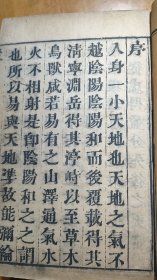 序
人身一小天地也天地之氣不
越陰陽陰陽和而後覆載得其
清寧淵岳得其渟峙以至草木
鳥獸咸若易有之山澤通氣水
火不相射是卽陰陽和之之謂
也所以易與天地準故能彌綸